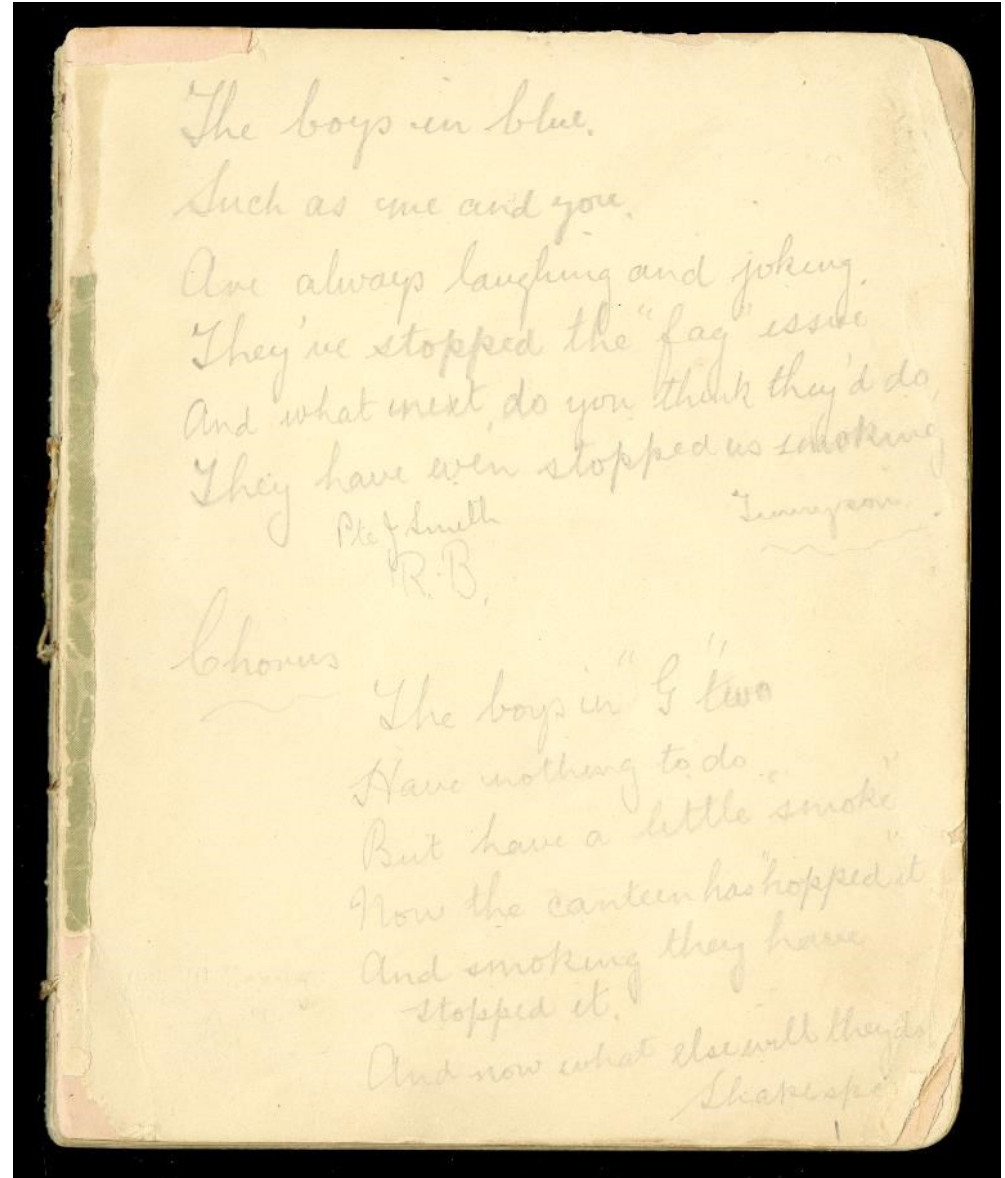 The boys in blue.
Such as me and you.
Are always laughing and joking.
They've stopped the "fag" issue
And what next, do you think they'd do,
They have even stopped us smoking
Pte J Smith
Tennyson.
R.B.
Chorus
The boys in "G" two
Have nothing to do.
But have a little "smoke"
Now the canteen has "hopped" it
And smoking they have
stopped it.
And now what else will they do